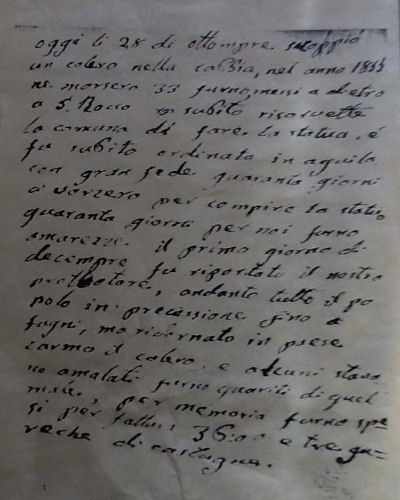 oggi li 28 di ottompre scoppiò
un colero nella cabbia, nel anno 1855
ne morsero 33 furno messi a dietro
a S. Rocco subito risorvette
la comuna di fare la statua, é
fu subito ordinata in aquila
con gran fede quaranta giorni
ci vorzero per compire la statua
quaranta giorni per noi furno
amarezze. il primo giorno di
decempre fu riportato il nostro
protettore, andante tutto il po
polo in precessione fino a
fugni, ma ritornato in paese
zarmo il colero, e alcuni stava
no amalati furno quariti di quel
male, per memoria furno spe
si per fattura 36:00 e tre qu=
reche di castagne.